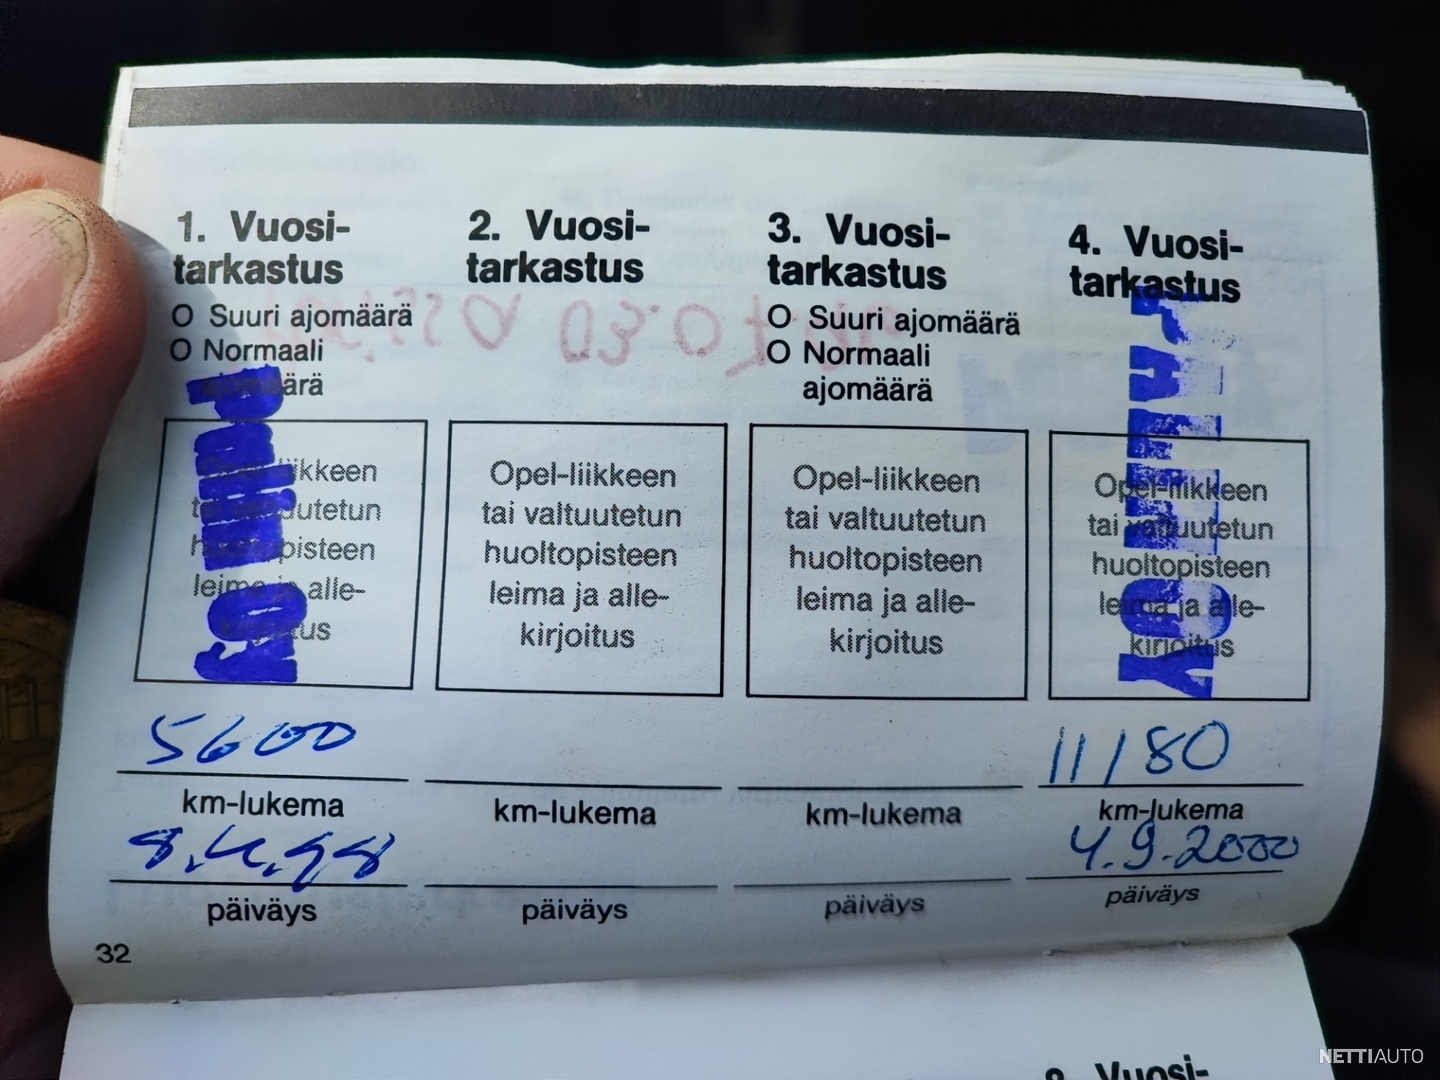 1. Vuosi-
tarkastus
O Suuri ajomäärä
O Normaali
ajomäärä
Opel-liikkeen
tai valtuutetun
huoltopisteen
leima ja alle-
kirjoitus
5600
km-lukema
8.4.98
päiväys
2. Vuosi-
tarkastus
Opel-liikkeen
tai valtuutetun
huoltopisteen
leima ja alle-
kirjoitus
km-lukema
päiväys
3. Vuosi-
tarkastus
O Suuri ajomäärä
O Normaali
ajomäärä
Opel-liikkeen
tai valtuutetun
huoltopisteen
leima ja alle-
kirjoitus
km-lukema
päiväys
4. Vuosi-
tarkastus
Opel-liikkeen
tai valtuutetun
huoltopisteen
leima ja alle-
kirjoitus
11180
km-lukema
4.9.2000
päiväys
32
Vuosi-
NETTIAUTO